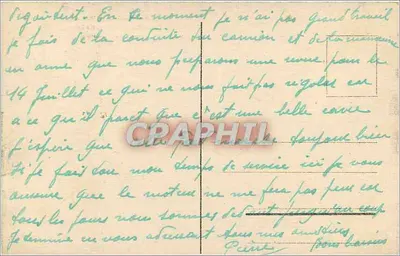 dégoûtant. En ce moment je n'ai pas grand travail
je fais de la conduite du camion et de la manœuvre
en arme que nous préparons une revue pour le
14 Juillet ce qui ne nous fait pas rigoler car
a ce qu'il parait que c'est une belle
CPARPHIL
J'espère que toujours bien
Si je fais tout mon temps de service ici je vous
assure que le moteur ne me fera pas peur car
tous les jours nous sommes
Je termine en vous adressant tous mes
Pierre Bons baisers